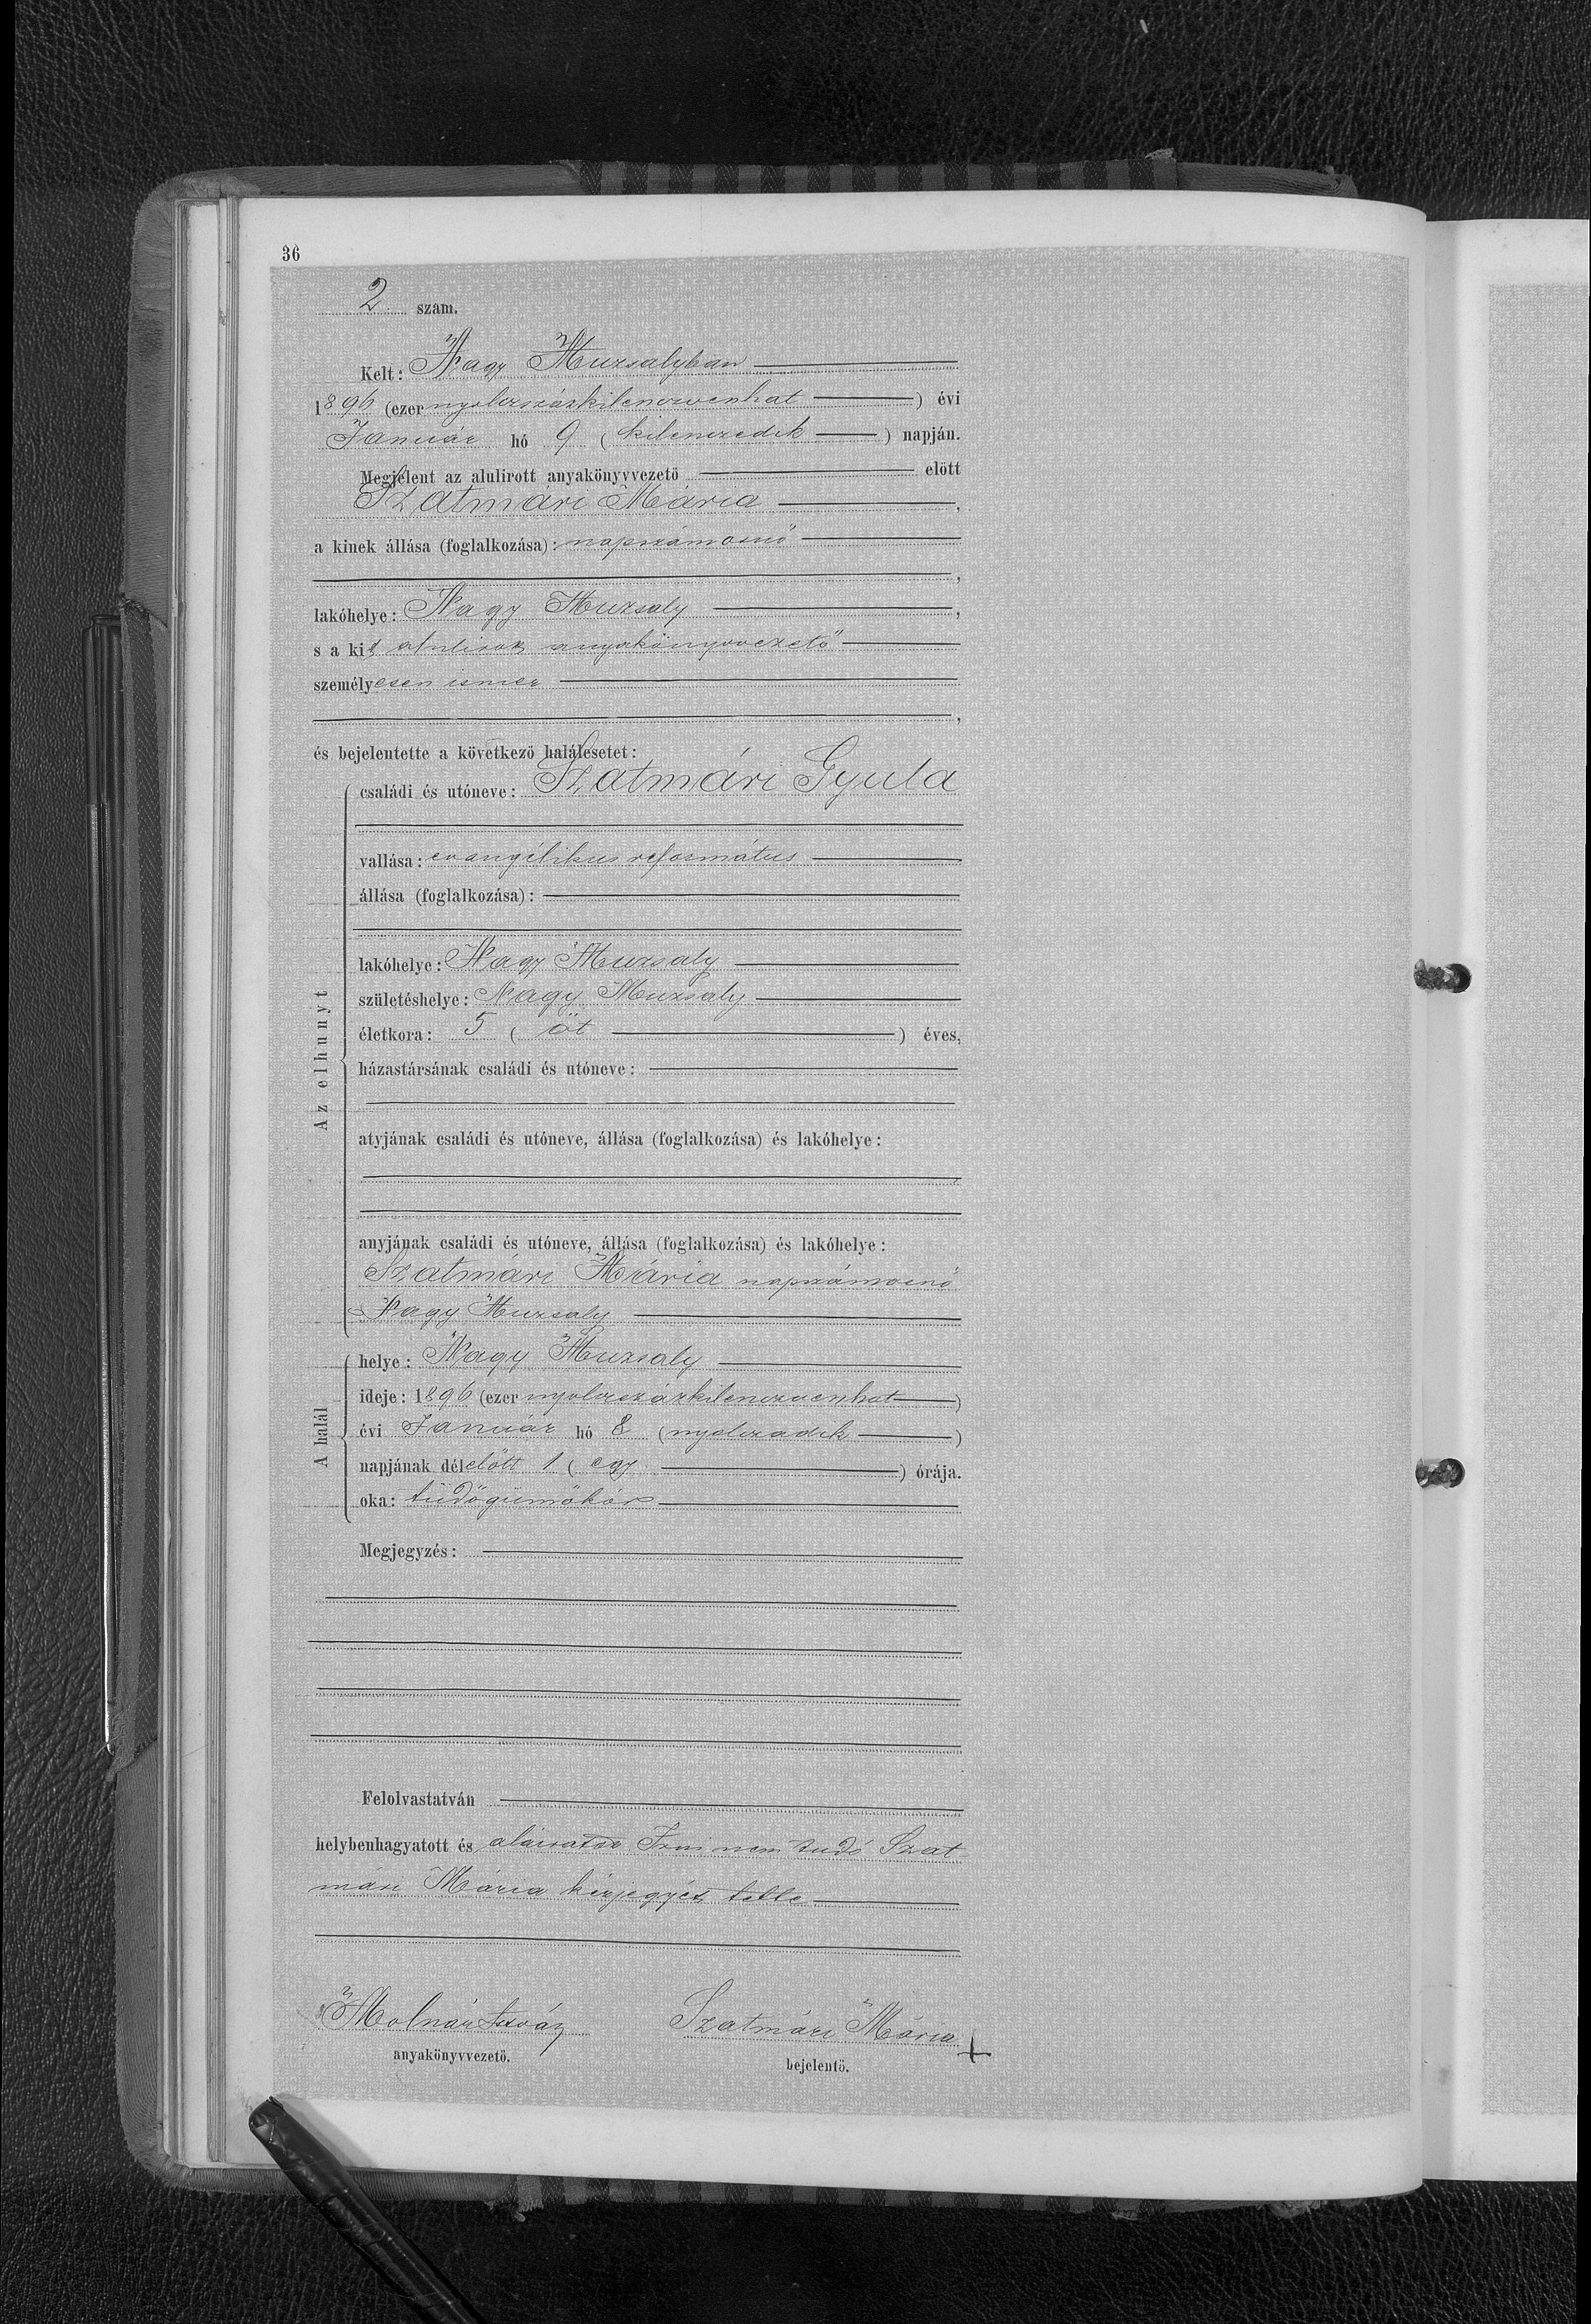 36
2 szám.
Kelt: Nagy Muzsalyban
1896 (ezer nyolczszázkilenczvenhat) évi
Január hó 9 (kilenczedik) napján.
Megjelent az alulirott anyakönyvvezető előtt
Szatmári Mária,
a kinek állása (foglalkozása): napszámosnő
,
lakóhelye: Nagy Muzsaly,
s a kit alulirott anyakönyvvezető
személyesen ismer
,
és bejelentette a következő halálesetet:
Az elhunyt
családi és utóneve: Szatmári Gyula
vallása: evangélikus református
állása (foglalkozása):
lakóhelye: Nagy Muzsaly
születéshelye: Nagy Muzsaly
életkora: 5 (öt) éves,
házastársának családi és utóneve:
atyjának családi és utóneve, állása (foglalkozása) és lakóhelye:
anyjának családi és utóneve, állása (foglalkozása) és lakóhelye:
Szatmári Mária napszámosnő
Nagy Muzsaly
A halál
helye: Nagy Muzsaly
ideje: 1896 (ezer nyolczszázkilenczvenhat)
évi Január hó 8 (nyolczadik)
napjának délelőtt 1 (egy) órája.
oka: tüdőgümőkór
Megjegyzés:
Felolvastatván
helybenhagyatott és aláiratott Irni nem tudó Szat
mári Mária kézjegyét tette
Molnár István Szatmári Mária +
anyakönyvvezető. bejelentő.